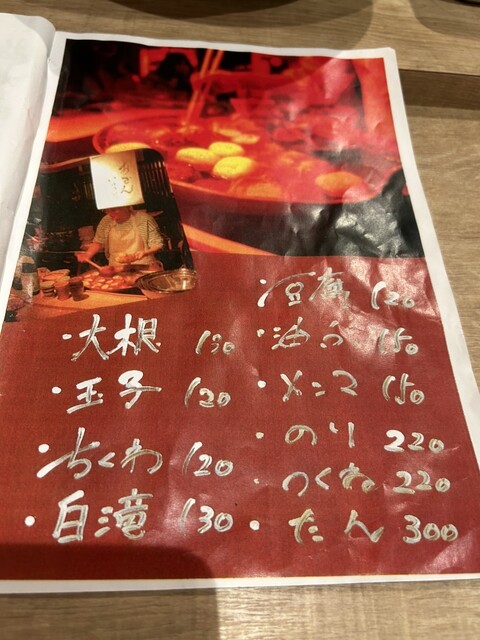 大根 130
玉子 120
ちくわ 120
白滝 130
・豆腐 120
・油ふ 150
・メンマ 150
・のり 220
・つくね 220
・たん 300